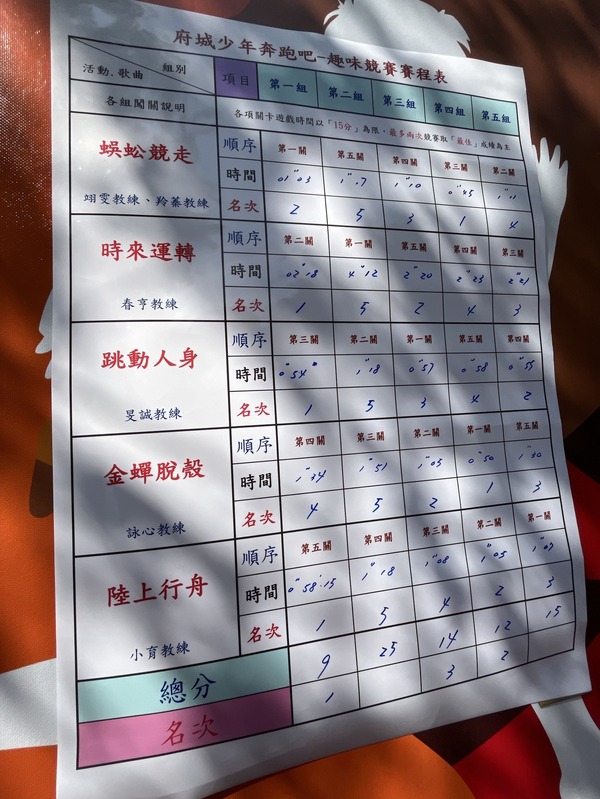 府城少年奔跑吧-趣味競賽賽程表
活動.歌曲 組別 項目 第一組 第二組 第三組 第四組 第五組
各組闖關說明 各項關卡遊戲時間以「15分」為限,最多兩次競賽取「最佳」成績為主
蜈蚣競走
翊雯教練、羚蓁教練
順序 第一關 第五關 第四關 第三關 第二關
時間 01"03 1"10 0"45 1"11
名次 2 5 3 1 4
時來運轉
春亨教練
順序 第二關 第一關 第五關 第四關 第三關
時間 02"18 4"12 2"20 2"23 2"21
名次 1 5 2 4 3
跳動人身
旻誠教練
順序 第三關 第二關 第一關 第五關 第四關
時間 0"54 1"18 0"57 0"58 0"55
名次 1 5 3 4 2
金蟬脫殼
詠心教練
順序 第四關 第三關 第二關 第一關 第五關
時間 1"34 1"51 1"05 0"50 1"30
名次 4 5 2 1 3
陸上行舟
小育教練
順序 第五關 第四關 第三關 第二關 第一關
時間 0"58.15 1"18 1"08 1"05 1"07
名次 1 5 4 2 3
總分 9 25 14 12 15
名次 1 3 2